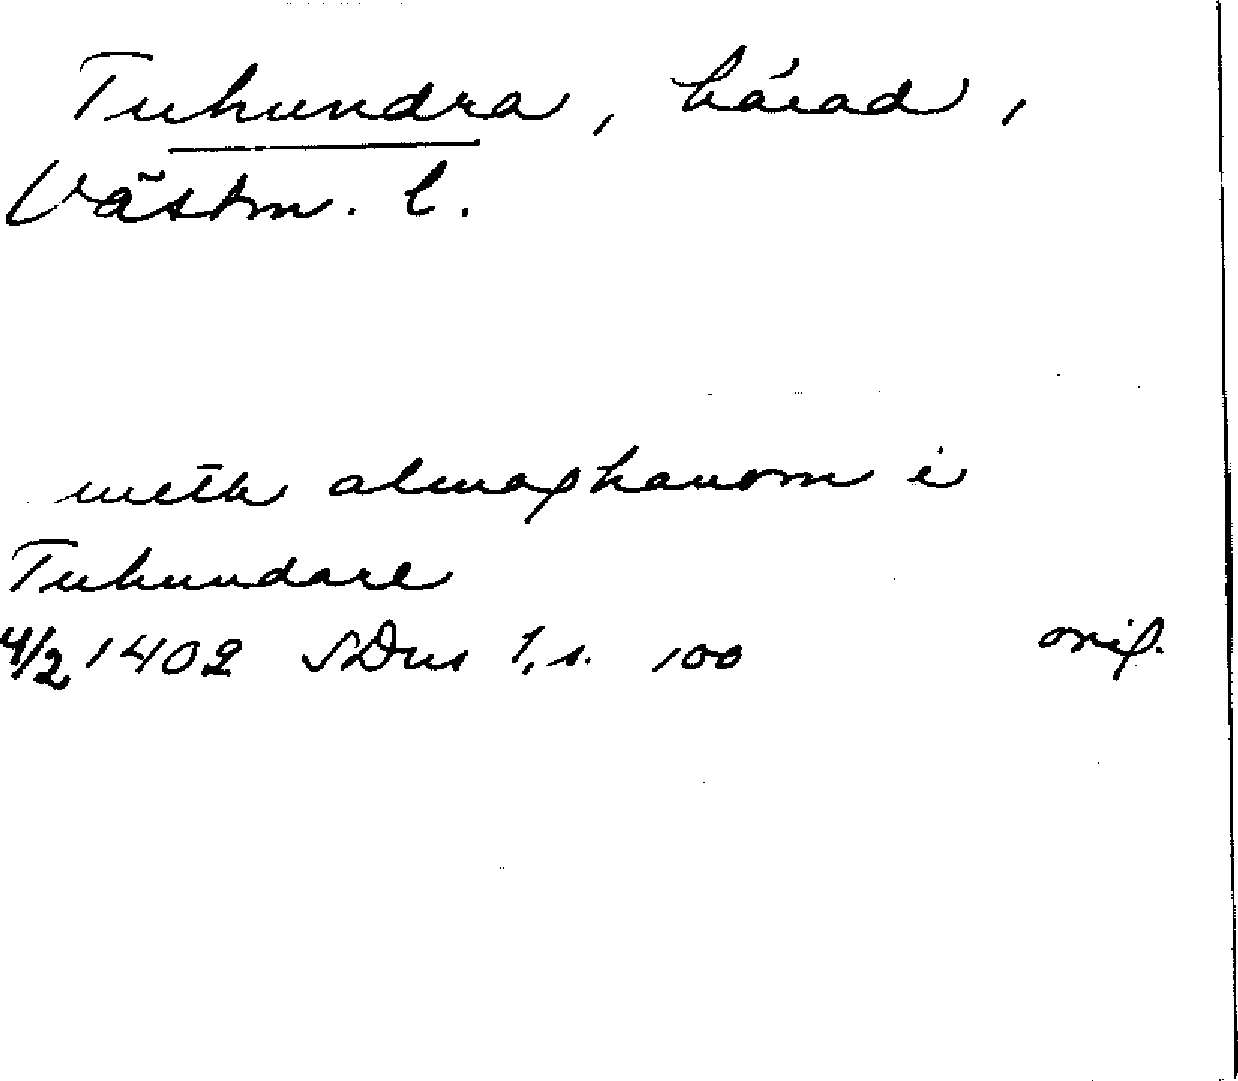 Tuhundra, härad,
Västm. l.
meth almoghanom i
Tuhundare
4/2 1402 SDns 1, s. 100 orig.